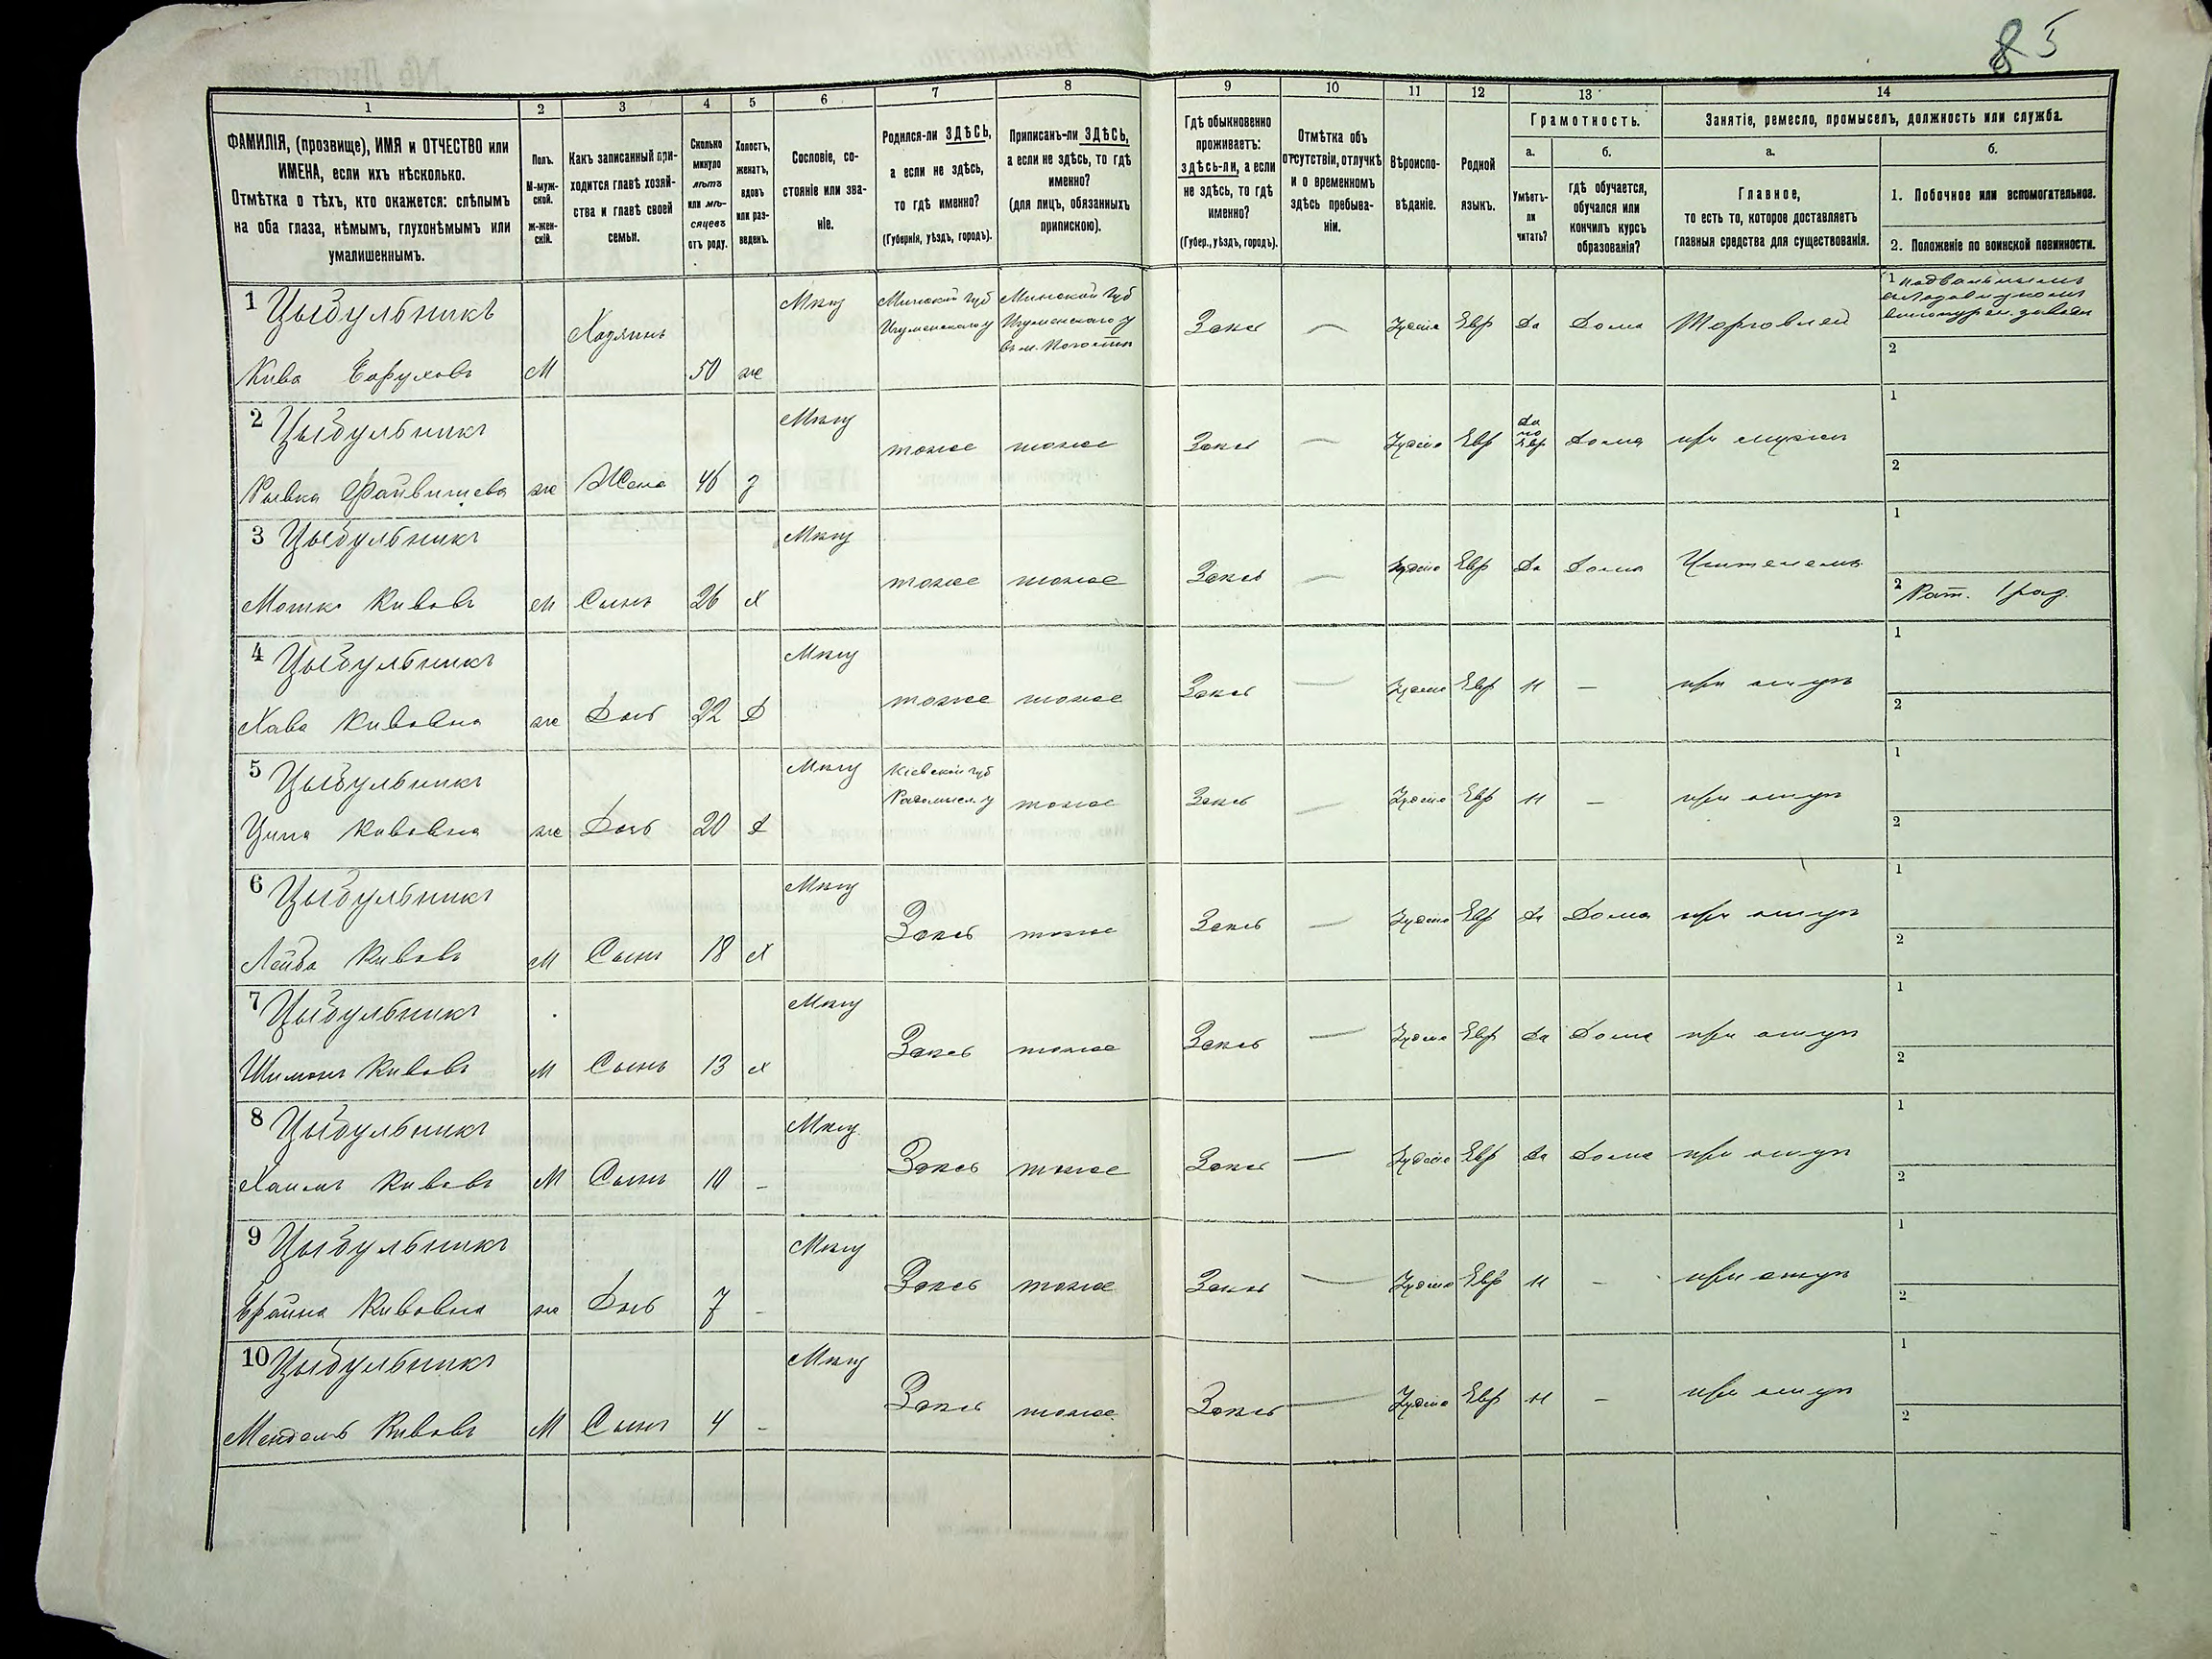 85
1 2 3 4 5 6 7 8 9 10 11 12 13 14
ФАМИЛІЯ, (прозвище), ИМЯ и ОТЧЕСТВО или
ИМЕНА, если ихъ нѣсколько.
Отмѣтка о тѣхъ, кто окажется: слѣпымъ
на оба глаза, нѣмымъ, глухонѣмымъ или
умалишеннымъ.
Полъ.
М-муж-
ской.
Ж-жен-
скій.
Какъ записанный при-
ходится главѣ хозяй-
ства и главѣ своей
семьи.
Сколько
минуло
лѣтъ
или мѣ-
сяцевъ
отъ роду.
Холостъ,
женатъ,
вдовъ
или раз-
веденъ.
Сословіе, со-
стояніе или зва-
ніе.
Родился-ли ЗДѢСЬ,
а если не здѣсь,
то гдѣ именно?
(Губернія, уѣздъ, городъ).
Приписанъ-ли ЗДѢСЬ,
а если не здѣсь, то гдѣ
именно?
(для лицъ, обязанныхъ
припискою).
Гдѣ обыкновенно
проживаетъ:
здѣсь-ли, а если
не здѣсь, то гдѣ
именно?
(Губер., уѣздъ, городъ).
Отмѣтка объ
отсутствіи, отлучкѣ
и о временномъ
здѣсь пребыва-
ніи.
Вѣроиспо-
вѣданіе.
Родной
языкъ.
Грамотность.
а.
Умѣетъ-
ли
читать?
б.
гдѣ обучается,
обучался или
кончилъ курсъ
образованія?
Занятіе, ремесло, промыселъ, должность или служба.
а.
Главное,
то есть то, которое доставляетъ
главныя средства для существованія.
б.
1. Побочное или вспомогательное.
2. Положеніе по воинской повинности.
1 Цыбульникъ
Кива Борухов М Хозяинъ 50 ж Мѣщ
Минской губ
Игуменскаго у
Минской губ
Игуменскаго у
Здѣсь — Іудейс Евр Да Дома Торговлей
1
2
2 Цыбульникъ
Ривка Файвишева ж Жена 46 з Мѣщ тоже тоже Здѣсь — Іудейс Евр
Да
по
Евр
Дома при мужѣ
1
2
3 Цыбульникъ
Мошко Кивовъ М Сынъ 26 х Мѣщ тоже тоже Здѣсь — Іудейс Евр Да Дома Учителемъ
1
2 Рат. 1 раз.
4 Цыбульникъ
Хава Кивовна ж Дочь 22 Д Мѣщ тоже тоже Здѣсь — Іудейс Евр Н — при отцѣ
1
2
5 Цыбульникъ
Ципа Кивовна ж Дочь 20 Д Мѣщ
Кіевской губ
Радомысл. у
тоже Здѣсь — Іудейс Евр Н — при отцѣ
1
2
6 Цыбульникъ
Лейба Кивовъ М Сынъ 18 х Мѣщ Здѣсь тоже Здѣсь — Іудейс Евр Да Дома при отцѣ
1
2
7 Цыбульникъ
Шимонъ Кивовъ М Сынъ 13 х Мѣщ Здѣсь тоже Здѣсь — Іудейс Евр Да Дома при отцѣ
1
2
8 Цыбульникъ
Хаимъ Кивовъ М Сынъ 10 – Мѣщ Здѣсь тоже Здѣсь — Іудейс Евр Да Дома при отцѣ
1
2
9 Цыбульникъ
Брайна Кивовна ж Дочь 7 – Мѣщ Здѣсь тоже Здѣсь — Іудейс Евр Н – при отцѣ
1
2
10 Цыбульникъ
Мендель Кивовъ М Сынъ 4 – Мѣщ Здѣсь тоже Здѣсь — Іудейс Евр Н – при отцѣ
1
2